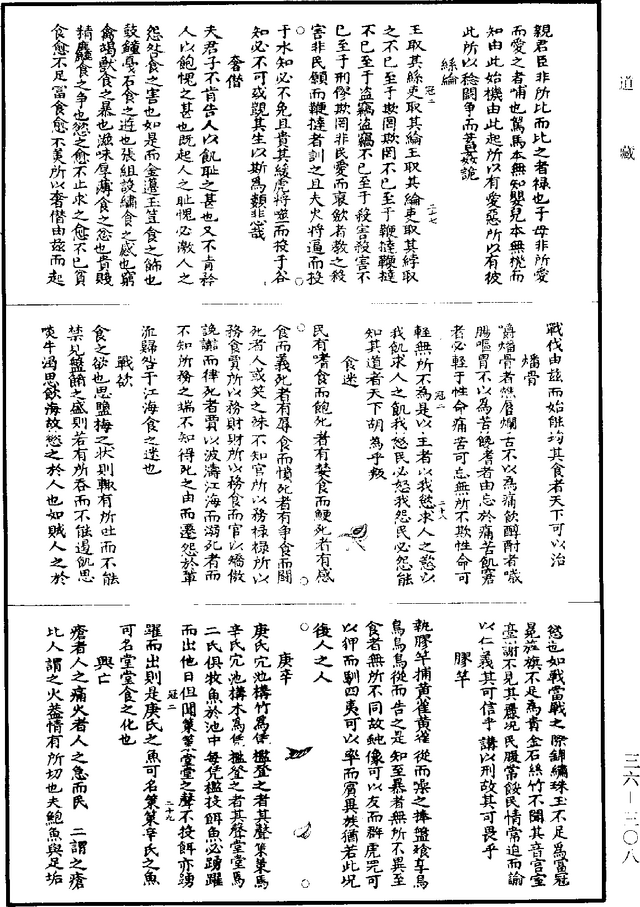 道藏
親君臣非所比而比之者祿也子母非所愛
而愛之者哺也駑馬本無知嬰兒本無機而
知由此始機由此起所以有愛惡所以有彼
此所以稔鬪爭而蓄姦詭
絲綸
冠二 二十七
王取其絲吏取其綸王取其綸吏取其綍取
之不已至于欺罔欺罔不已至于鞭撻鞭撻
不已至于盜竊盜竊不已至于殺害殺害不
已至于刑僇欺罔非民愛而裒歛者教之殺
害非民願而鞭撻者訓之且夫火將逼而投
于水知必不免且貴其緩虎將噬而投于谷
知必不可或覬其生以斯為類悲哉
奢僭
夫君子不肯告人以飢恥之甚也又不肯矜
人以飽愧之甚也既起人之恥愧必激人之
怨咎食之害也如是而金籩玉豆食之飾也
鼓鐘戞石食之遊也張組設繡食之惑也窮
禽竭獸食之暴也滋味厚薄食之忿也貴賤
精麤食之爭也慾之愈不止求之愈不已貧
食愈不足富食愈不美所以奢僭由茲而起
戰伐由茲而始能均其食者天下可以治
燔骨
嚼燔骨者焦脣爛舌不以為痛飲醇酎者噦
腸嘔胃不以為苦饞嗜者由忘於痛苦飢窘
者必輕于性命痛苦可忘無所不欺性命可
冠二 二十八
輕無所不為是以主者以我慾求人之慾以
我飢求人之飢我怒民必怒我怨民必怨能
知其道者天下胡為乎叛
食迷
民有嗜食而飽死者有婪食而鯁死者有感
食而義死者有辱食而憤死者有爭食而鬪
死者人或笑之殊不知官所以務祿祿所以
務食賈所以務財財所以務食而官以矯傲
讒譖而律死者賈以波濤江海而溺死者而
不知所務之端不知得死之由而遷怨於輩
流歸咎于江海食之迷也
戰欲
食之欲也思鹽梅之狀則輒有所吐而不能
禁見盤餚之盛則若有所吞而不能遏飢思
啖牛渴思飲海故慾之於人也如賊人之於
慾也如戰當戰之際錦繡珠玉不足為富冠
冕旌旗不足為貴金石絲竹不聞其音宮室
臺榭不見其麗況民腹常餒民情常迫而諭
以仁義其可信乎講以刑故其可畏乎
膠竿
執膠竿捕黃雀黃雀從而噪之捧盤飡享烏
烏烏從而告之是知至暴者無所不異至
食者無所不同故蛇像可以友而群虎兕可
以狎而馴四夷可以率而賓異族猶若此況
復人之人
庚辛
庚氏穴池構竹為凭檻登之者其聲策策焉
辛氏穴池構木為凭檻登之者其聲堂堂焉
二氏俱牧魚於池中每凭檻投餌魚必踴躍
而出他日但聞策策堂堂之聲不投餌亦踴
冠二 二十九
躍而出則是庚氏之魚可名策策辛氏之魚
可名堂堂食之化也
興亡
瘡者人之痛火者人之急而民 二謂之瘡
比人謂之火蓋情有所切也夫鮑魚與足垢
三六—三〇八